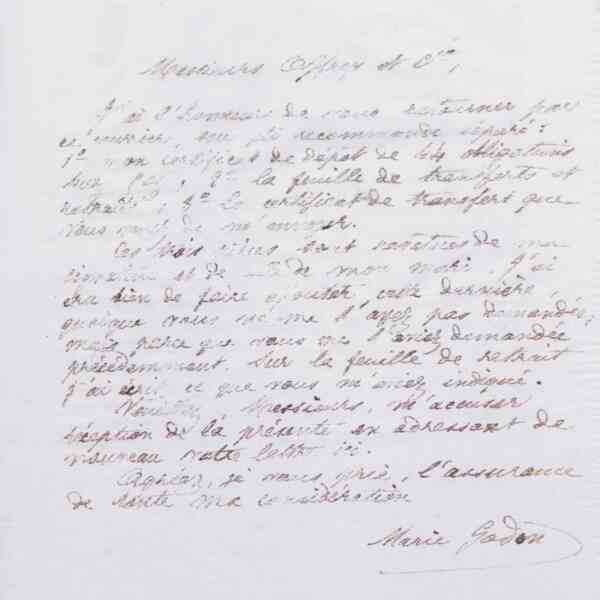 Messieurs et Cie,
J'ai l'honneur de vous retourner par
ce courrier, sous pli recommandé séparé:
1o mon certificat de dépôt de 44 obligations
Suez ; 2o la feuille de transferts et
; 3o Le certificat de transfert que
vous de m'envoyer.
Ces trois pièces sont revêtues de ma
signature et de de mon mari. J'ai
cru bien de faire ajouter cette dernière,
quoique vous ne me l'ayez pas demandée,
mais parce que vous me l'aviez demandée
précédemment. Sur la feuille de retrait
j'ai écrit ce que vous m'aviez indiqué.
Veuillez, Messieurs, m'accuser
réception de la présente en adressant de
nouveau votre lettre ici.
Agréez, je vous prie, l'assurance
de toute ma considération
Marie Godon